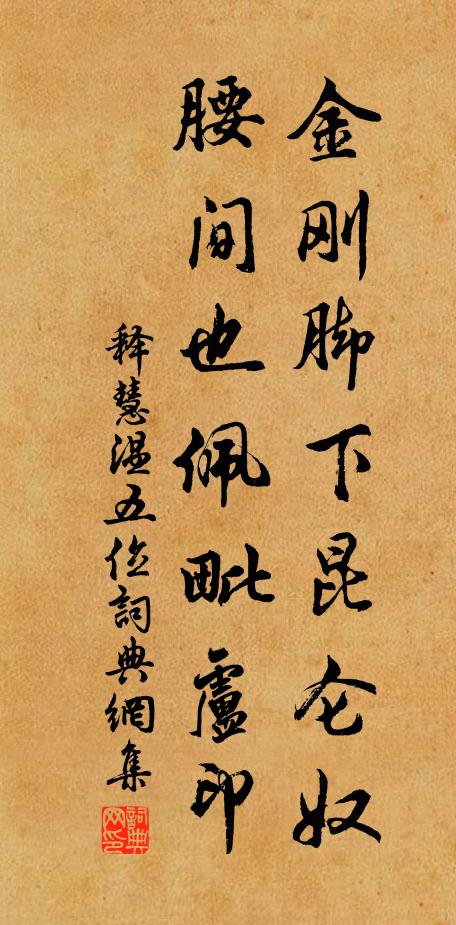 金刚脚下昆仑奴
腰间也佩毗卢印
释慧温五位詞典網集
詞典网印